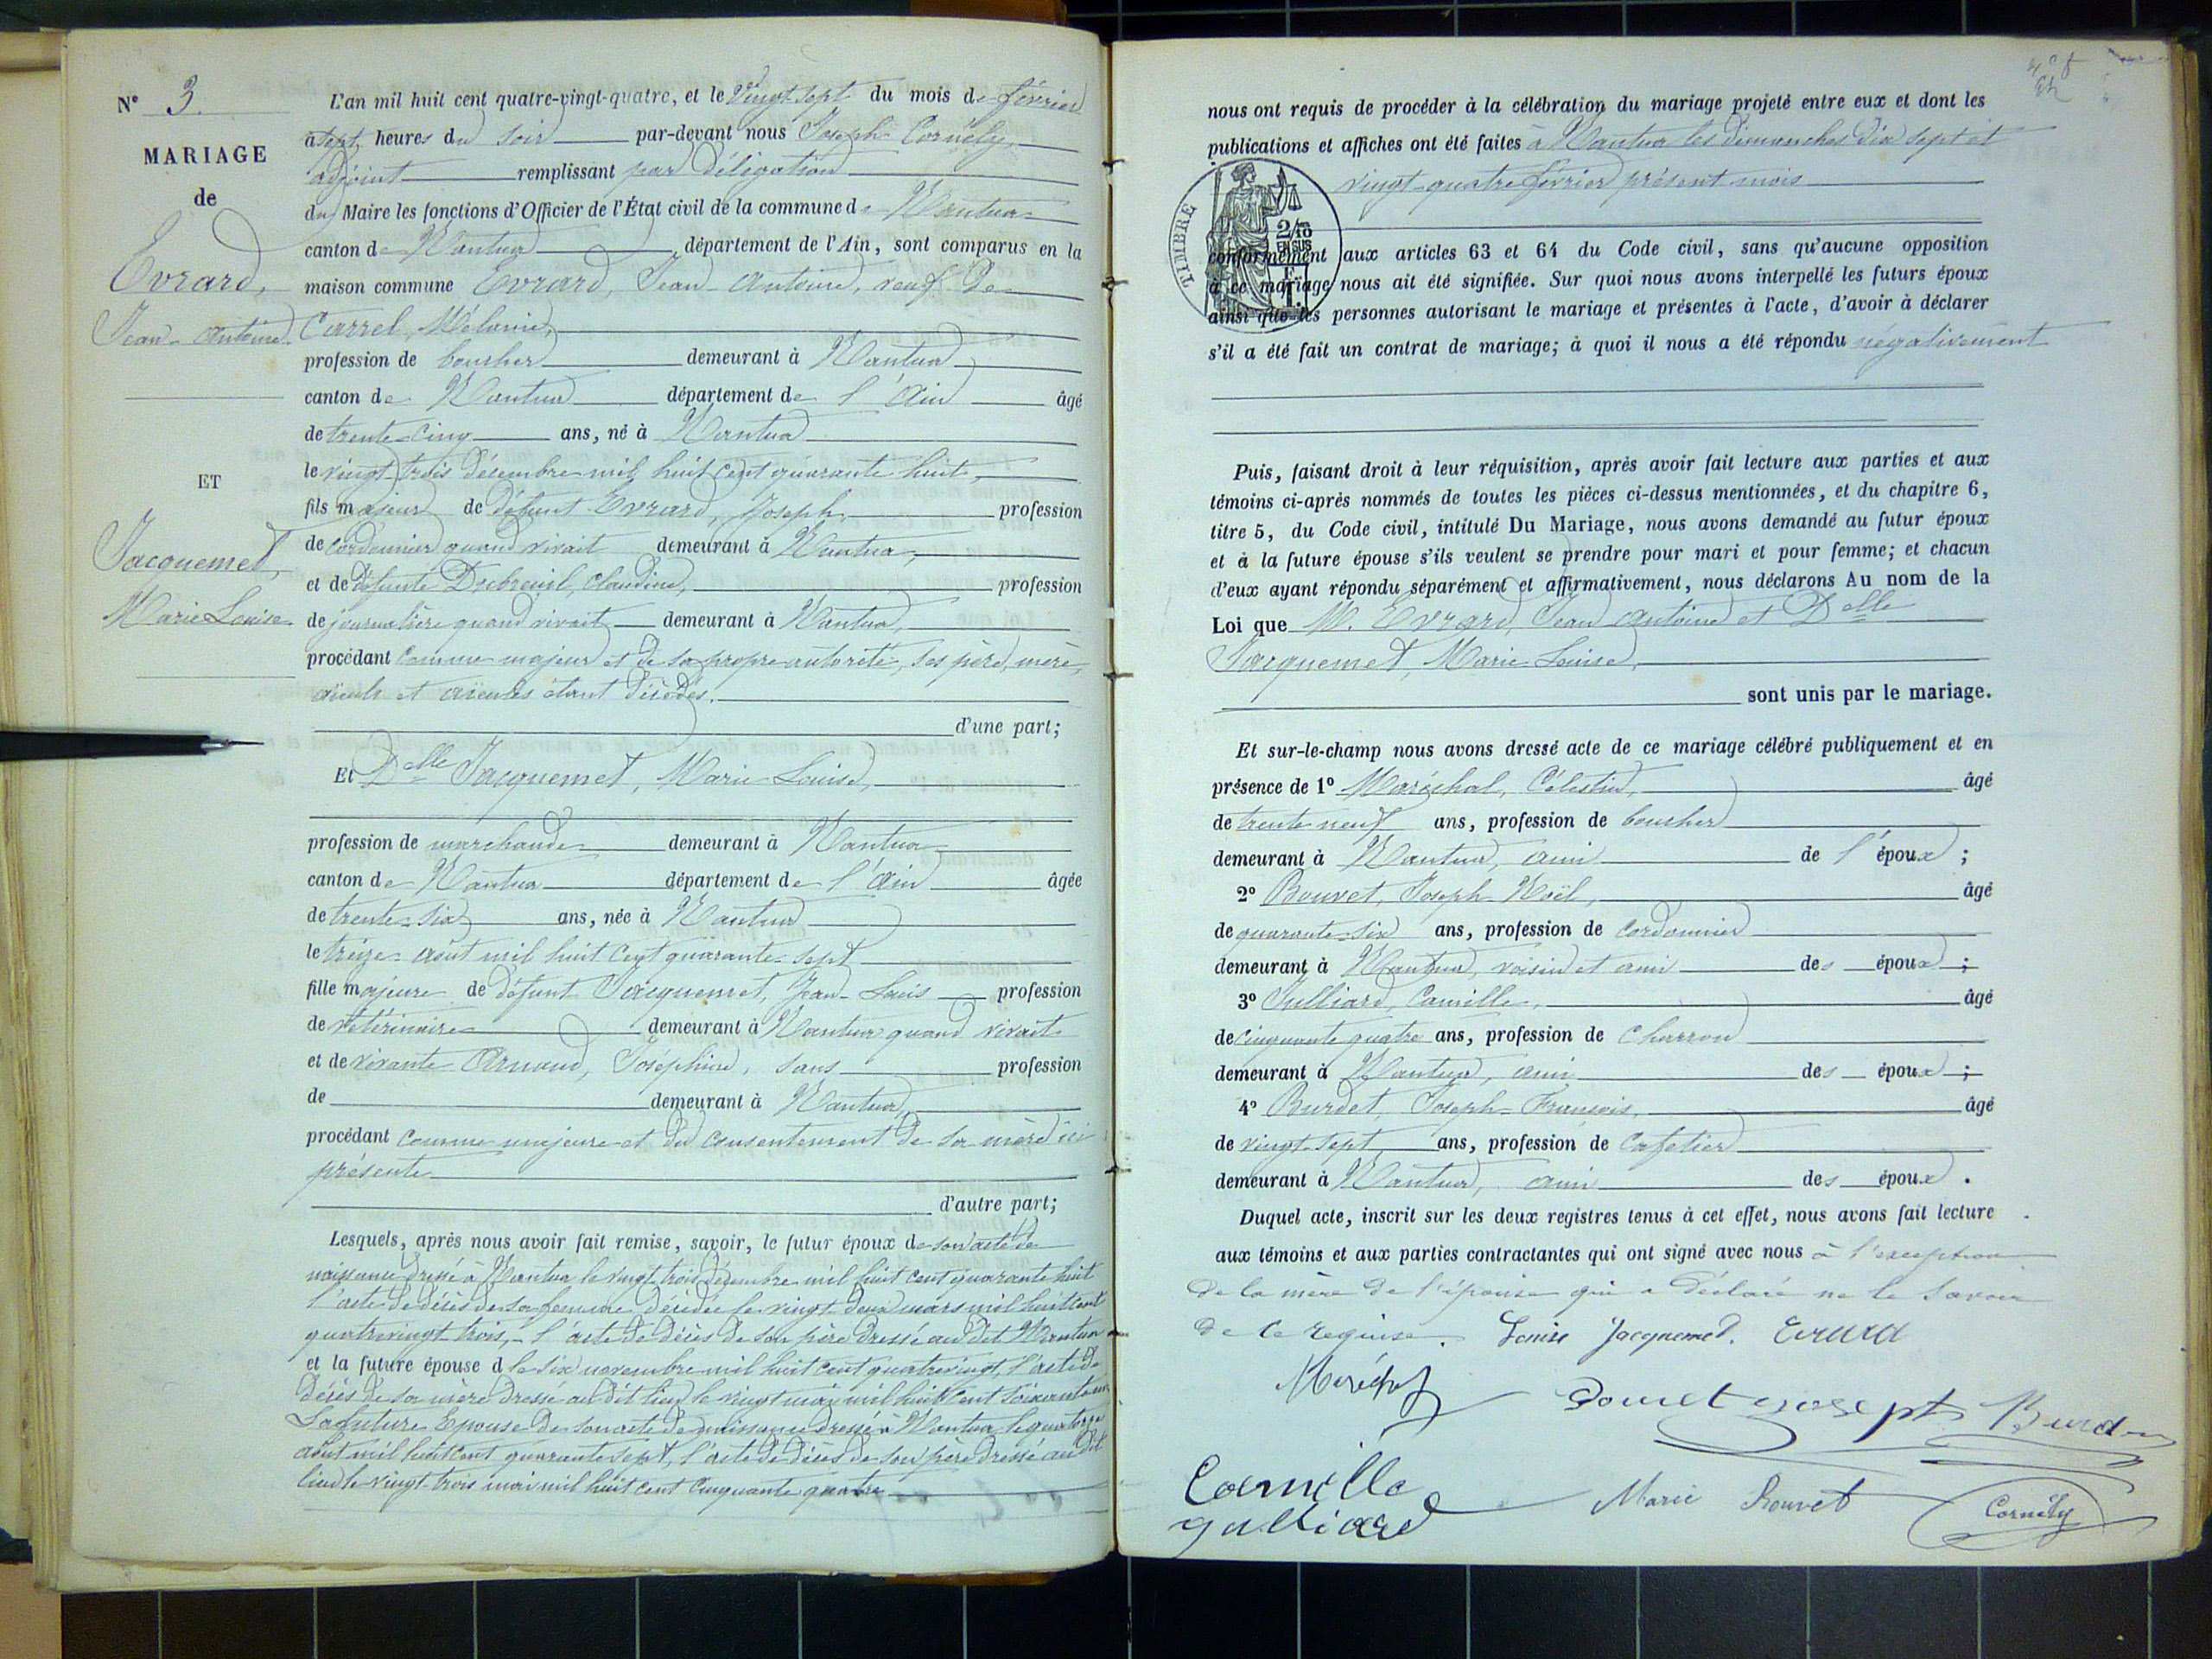 N° 3.
MARIAGE
de
Evrard,
Jean-Antoine.
ET
Jacquemet,
Marie Louise
L'an mil huit cent quatre-vingt-quatre, et le Vingt sept du mois de février
à sept heures du soir par-devant nous Joseph Cornély,
adjoint remplissant par délégation
du Maire les fonctions d'Officier de l'État civil de la commune de Nantua
canton de Nantua département de l'Ain, sont comparus en la
maison commune Evrard, Jean-Antoine, veuf de
Carrel, Mélanie,
profession de boucher demeurant à Nantua
canton de Nantua département de l'Ain âgé
de trente-cinq ans, né à Nantua
le vingt-trois décembre mil huit cent quarante huit,
fils majeur de défunt Evrard, Joseph, profession
de cordonnier quand vivait demeurant à Nantua,
et de défunte Dubreuil, Claudine, profession
de journalière quand vivait demeurant à Nantua,
procédant comme majeur et de sa propre autorité, ses père, mère,
aïeuls et aïeules étant décédés.
d'une part;
Et Delle Jacquemet, Marie-Louise,
profession de marchande demeurant à Nantua
canton de Nantua département de l'Ain âgée
de trente-six ans, née à Nantua
le treize août mil huit cent quarante-sept
fille majeure de défunt Jacquemet, Jean-Louis profession
de vétérinaire demeurant à Nantua quand vivait
et de vivante Arnaud, Joséphine, sans profession
de demeurant à Nantua,
procédant comme majeure et du consentement de sa mère ici
présente
d'autre part;
Lesquels, après nous avoir fait remise, savoir, le futur époux de son acte de
naissance dressé à Nantua le vingt trois décembre mil huit cent quarante huit
l'acte de décès de sa femme décédée le vingt deux mars mil huit cent
quatrevingt trois, - l'acte de décès de son père dressé au dit Nantua
et la future épouse d le six novembre mil huit cent quatrevingt, l'acte de
décès de sa mère dressé au dit lieu le vingt mai mil huit cent soixante
La future Epouse de son acte de naissance dressé à Nantua le quatorze
août mil huit cent quarante sept, l'acte de décès de son père dressé au dit
lieu le vingt-trois mai mil huit cent cinquante quatre
nous ont requis de procéder à la célébration du mariage projeté entre eux et dont les
publications et affiches ont été faites à Nantua les dimanches dix sept et
vingt-quatre février présent mois
TIMBRE
2/10
EN SUS
conformément aux articles 63 et 64 du Code civil, sans qu'aucune opposition
à ce mariage nous ait été signifiée. Sur quoi nous avons interpellé les futurs époux
ainsi que les personnes autorisant le mariage et présentes à l'acte, d'avoir à déclarer
s'il a été fait un contrat de mariage; à quoi il nous a été répondu négativement
Puis, faisant droit à leur réquisition, après avoir fait lecture aux parties et aux
témoins ci-après nommés de toutes les pièces ci-dessus mentionnées, et du chapitre 6,
titre 5, du Code civil, intitulé Du Mariage, nous avons demandé au futur époux
et à la future épouse s'ils veulent se prendre pour mari et pour femme; et chacun
d'eux ayant répondu séparément et affirmativement, nous déclarons Au nom de la
Loi que M. Evrard, Jean Antoine et Delle
Jacquemet, Marie-Louise,
sont unis par le mariage.
Et sur-le-champ nous avons dressé acte de ce mariage célébré publiquement et en
présence de 1° Maréchal, Célestin, âgé
de trente neuf ans, profession de boucher
demeurant à Nantua, ami de l'époux;
2° Bouvet, Joseph-Noël, âgé
de quarante-six ans, profession de cordonnier
demeurant à Nantua, voisin et ami des époux;
3° Julliard, Camille, âgé
de cinquante quatre ans, profession de Charron
demeurant à Nantua, ami des époux;
4° Burdet, Joseph-François, âgé
de vingt-sept ans, profession de Cafetier
demeurant à Nantua, ami des époux.
Duquel acte, inscrit sur les deux registres tenus à cet effet, nous avons fait lecture
aux témoins et aux parties contractantes qui ont signé avec nous à l'exception
de la mère de l'épouse qui a déclaré ne le savoir
de ce requise. Louise Jacquemet. Evrard
Maréchal Bouvet Joseph Burdet
Camille
Julliard Marie Bouvet Cornély